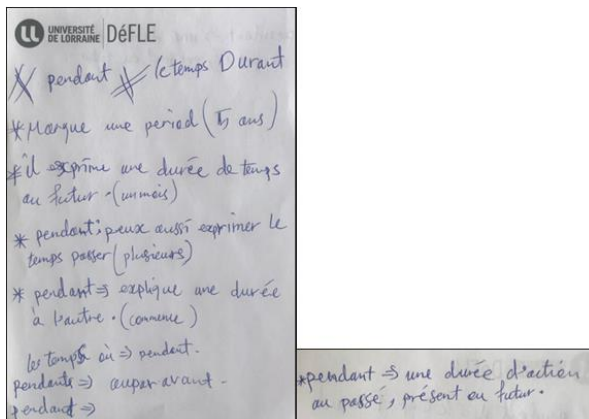 UNIVERSITÉ
DE LORRAINE
DéFLE
pendant le temps Durant
*Marque une period (5 ans)
*il exprime une durée de temps
au futur. (un mois)
* pendant; peux aussi exprimer le
temps passer (plusieurs)
* pendant => explique une durée
à l'autre. (commence)
les temps où => pendant.
pendants => auparavant.
pendant =>
*pendant => une durée d'action
au passé, présent ou futur.